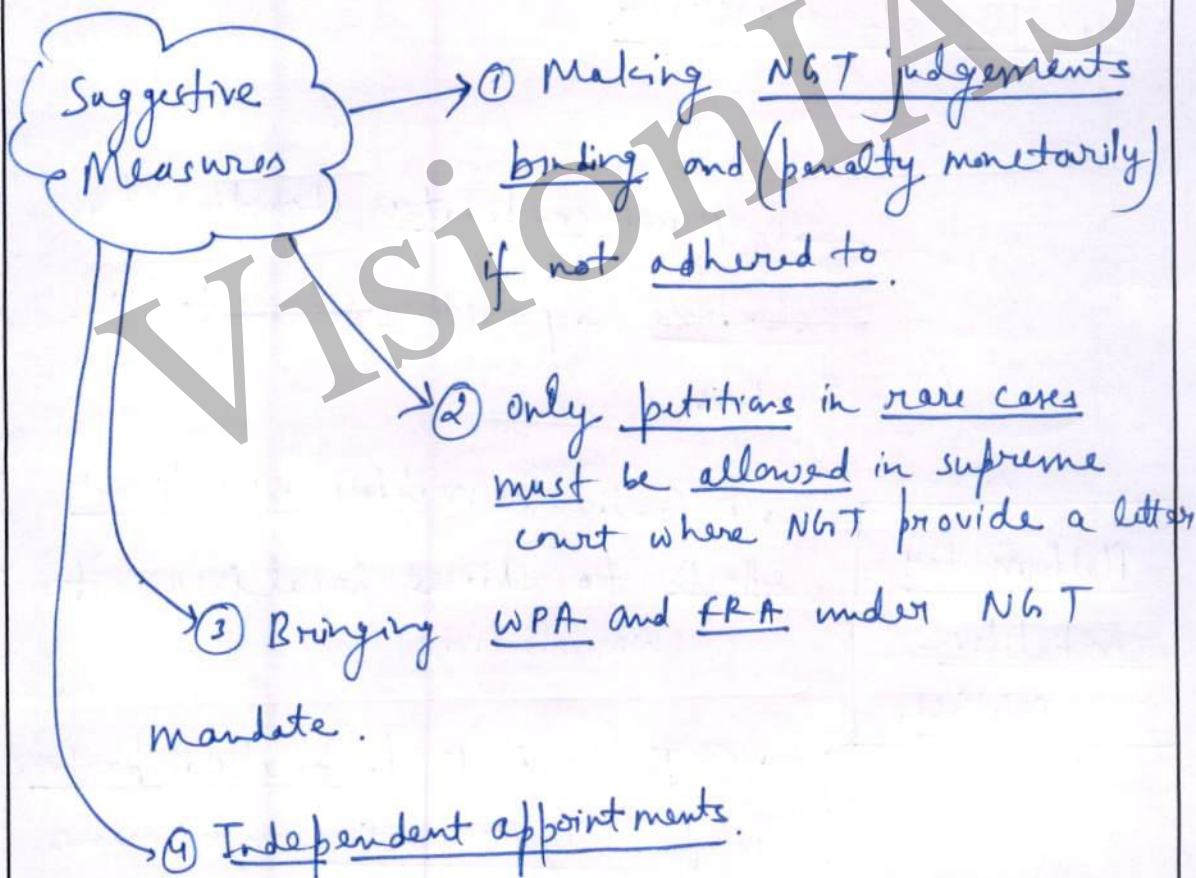 Suggestive
Measures
① Making NGT judgements
binding and (penalty monetarily)
if not adhered to.
② only petitions in rare cases
must be allowed in supreme
court where NGT provide a letter
③ Bringing WPA and FRA under NGT
mandate.
④ Independent appointments.
VisionIAS